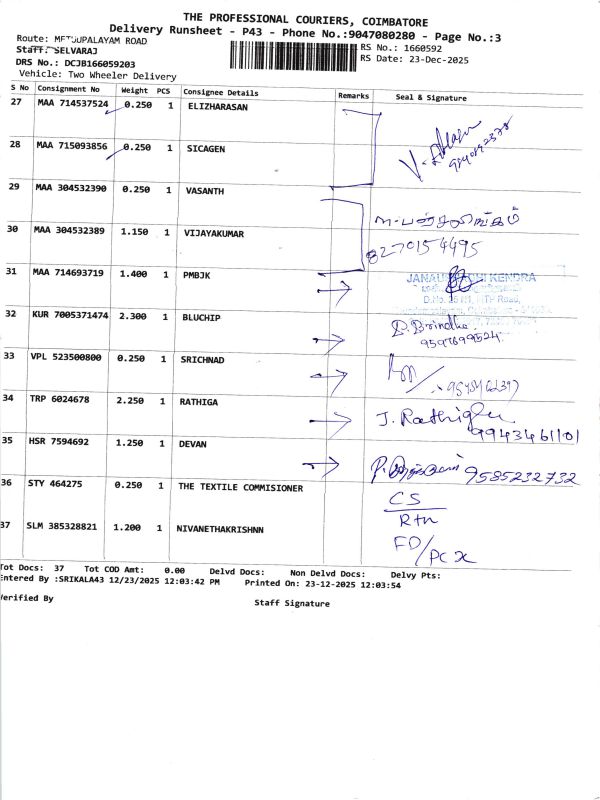 THE PROFESSIONAL COURIERS, COIMBATORE
Delivery Runsheet - P43 - Phone No.:9047080280 - Page No.:3
Route: METTUPALAYAM ROAD
Staff: SELVARAJ
RS No.: 1660592
DRS No.: DCJB166059203
RS Date: 23-Dec-2025
Vehicle: Two Wheeler Delivery
S No Consignment No Weight PCS Consignee Details Remarks Seal & Signature
27 MAA 714537524 0.250 1 ELIZHARASAN
28 MAA 715093856 0.250 1 SICAGEN
29 MAA 304532390 0.250 1 VASANTH
30 MAA 304532389 1.150 1 VIJAYAKUMAR 8270154495
31 MAA 714693719 1.400 1 PMBJK KENDRA
32 KUR 7005371474 2.300 1 BLUCHIP Brindha
9597699524
33 VPL 523500800 0.250 1 SRICHNAD
34 TRP 6024678 2.250 1 RATHIGA J. Rathigha
9943461101
35 HSR 7594692 1.250 1 DEVAN 9585232732
36 STY 464275 0.250 1 THE TEXTILE COMMISIONER CS
Rtn
37 SLM 385328821 1.200 1 NIVANETHAKRISHNN FD/PC x
Tot Docs: 37 Tot COD Amt: 0.00 Delvd Docs: Non Delvd Docs: Delvy Pts:
Entered By :SRIKALA43 12/23/2025 12:03:42 PM Printed On: 23-12-2025 12:03:54
Verified By
Staff Signature